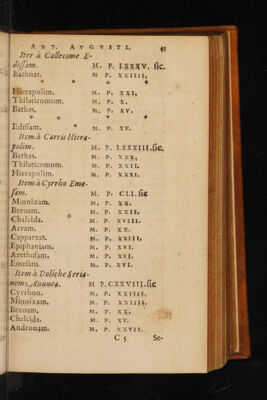 ANT. AVGVSTI. 41
Iter à Callecome E-
dissam. M. P. LXXXV. sic.
Bathnas. M P. XXIIII.
* * * *
Hierapolim. M. P. XXI.
Thilaticomum. M. P. X.
Bathas. M. P. XV.
* * * *
Edissam. * M. P. XV.
Item à Carris Hiera-
polim. M. P. LXXXIII. sic.
Bathas. M. P. XXX,
Thilaticomum. M. P. XXII.
Hierapolim. M. P. XXXI.
Item à Cyrrho Eme-
sam. M. P. CLI. sic
Minnizam. M. P. XX.
Beroam. M. P. XXII.
Chalcida. M. P. XVIII.
Arram. M. P. XX.
Cappareas. M. P. XXIII.
Epiphaniam. M. P. XVI.
Arethusam. M. P. XVI.
Emesam. M. P. XVI.
Item à Doliche Seria-
nem M P. CXXVIII. sic
Cyrrhon. M. P. XXIIII.
Minnizam. M. P. XXIIII.
Beroam. M. P. XX.
Chalcida. M. P. XV.
Andronam. M. P. XXVII.
C 5 Se-